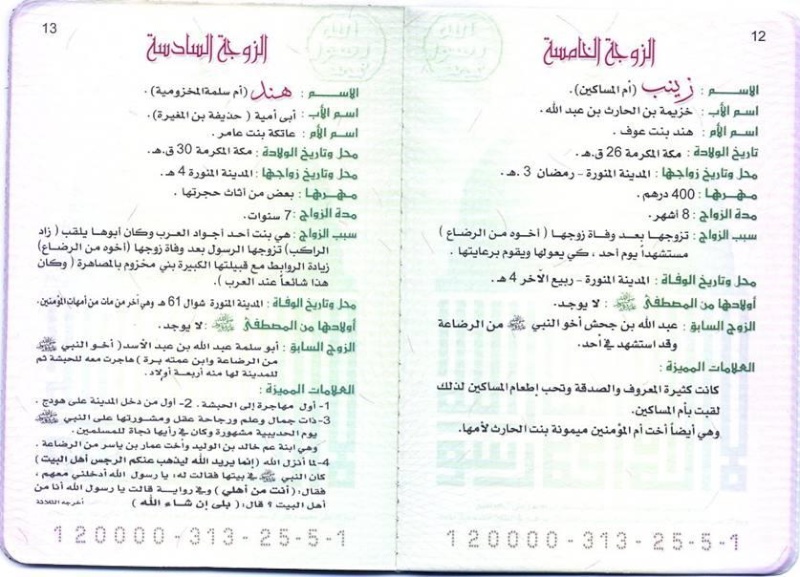 12
الزوجة الخامسة
الاسـم : زينب (أم المساكين).
اسم الأب : خزيمة بن الحارث بن عبد الله.
اسم الأم : هند بنت عوف.
تاريخ الولادة : مكة المكرمة 26 ق.هـ.
محل وتاريخ زواجها : المدينة المنورة - رمضان 3 .هـ .
مهرها : 400 درهم .
مدة الزواج : 8 أشهر.
سبب الزواج : تزوجها بعد وفاة زوجها ( أخوه من الرضاع )
مستشهداً يوم أحد ، كي يعولها ويقوم برعايتها .
محل وتاريخ الوفاة : المدينة المنورة - ربيع الآخر 4 هـ .
أولادها من المصطفى ﷺ : لا يوجد.
الزوج السابق : عبد الله بن جحش أخو النبي ﷺ من الرضاعة
وقد استشهد في أحد.
العلامات المميزة :
كانت كثيرة المعروف والصدقة وتحب إطعام المساكين لذلك
لقبت بأم المساكين.
وهي أيضاً أخت أم المؤمنين ميمونة بنت الحارث لأمها.
120000-313-25-5-1
13
الزوجة السادسة
الاسـم : هند (أم سلمة المخزومية) .
اسم الأب : أبى أمية ( حذيفة بن المغيرة).
اسم الأم : عاتكة بنت عامر .
محل وتاريخ الولادة : مكة المكرمة 30 ق.هـ.
محل وتاريخ زواجها : المدينة المنورة 4 هـ.
مهرها : بعض من أثاث حجرتها .
مدة الزواج : 7 سنوات.
سبب الزواج : هي بنت أحد أجواد العرب وكان أبوها يلقب ( زاد
الراكب) تزوجها الرسول بعد وفاة زوجها (أخوه من الرضاع)
زيادة الروابط مع قبيلتها الكبيرة بني مخزوم بالمصاهرة ( وكان
هذا شائعاً عند العرب ).
محل وتاريخ الوفاة : المدينة المنورة شوال 61 هـ وهي آخر من مات من أمهات المؤمنين.
أولادها من المصطفى ﷺ : لا يوجد.
الزوج السابق : أبو سلمة عبد الله بن عبد الأسد( أخو النبي ﷺ
من الرضاعة وابن عمته برة ) هاجرت معه للحبشة ثم
للمدينة لها منه أربعة أولاد.
العلامات المميزة :
1- أول مهاجرة إلى الحبشة . 2- أول من دخل المدينة على هودج .
3- ذات جمال وعلم ورجاحة عقل ومشورتها على النبي ﷺ
يوم الحديبية مشهورة وكان في رأيها نجاة للمسلمين .
وهي ابنة عم خالد بن الوليد وأخت عمار بن ياسر من الرضاعة .
4- لما أنزل الله ( إنما يريد الله ليذهب عنكم الرجس أهل البيت )
كان النبي ﷺ في بيتها فقالت له، يا رسول الله أدخلني معهم ،
فقال: ( أنت من أهلي ) وفي رواية قالت يا رسول الله أنا من
أهل البيت ؟ قال: ( بلى إن شاء الله ) أخرجه الثلاثة
120000-313-25-5-1